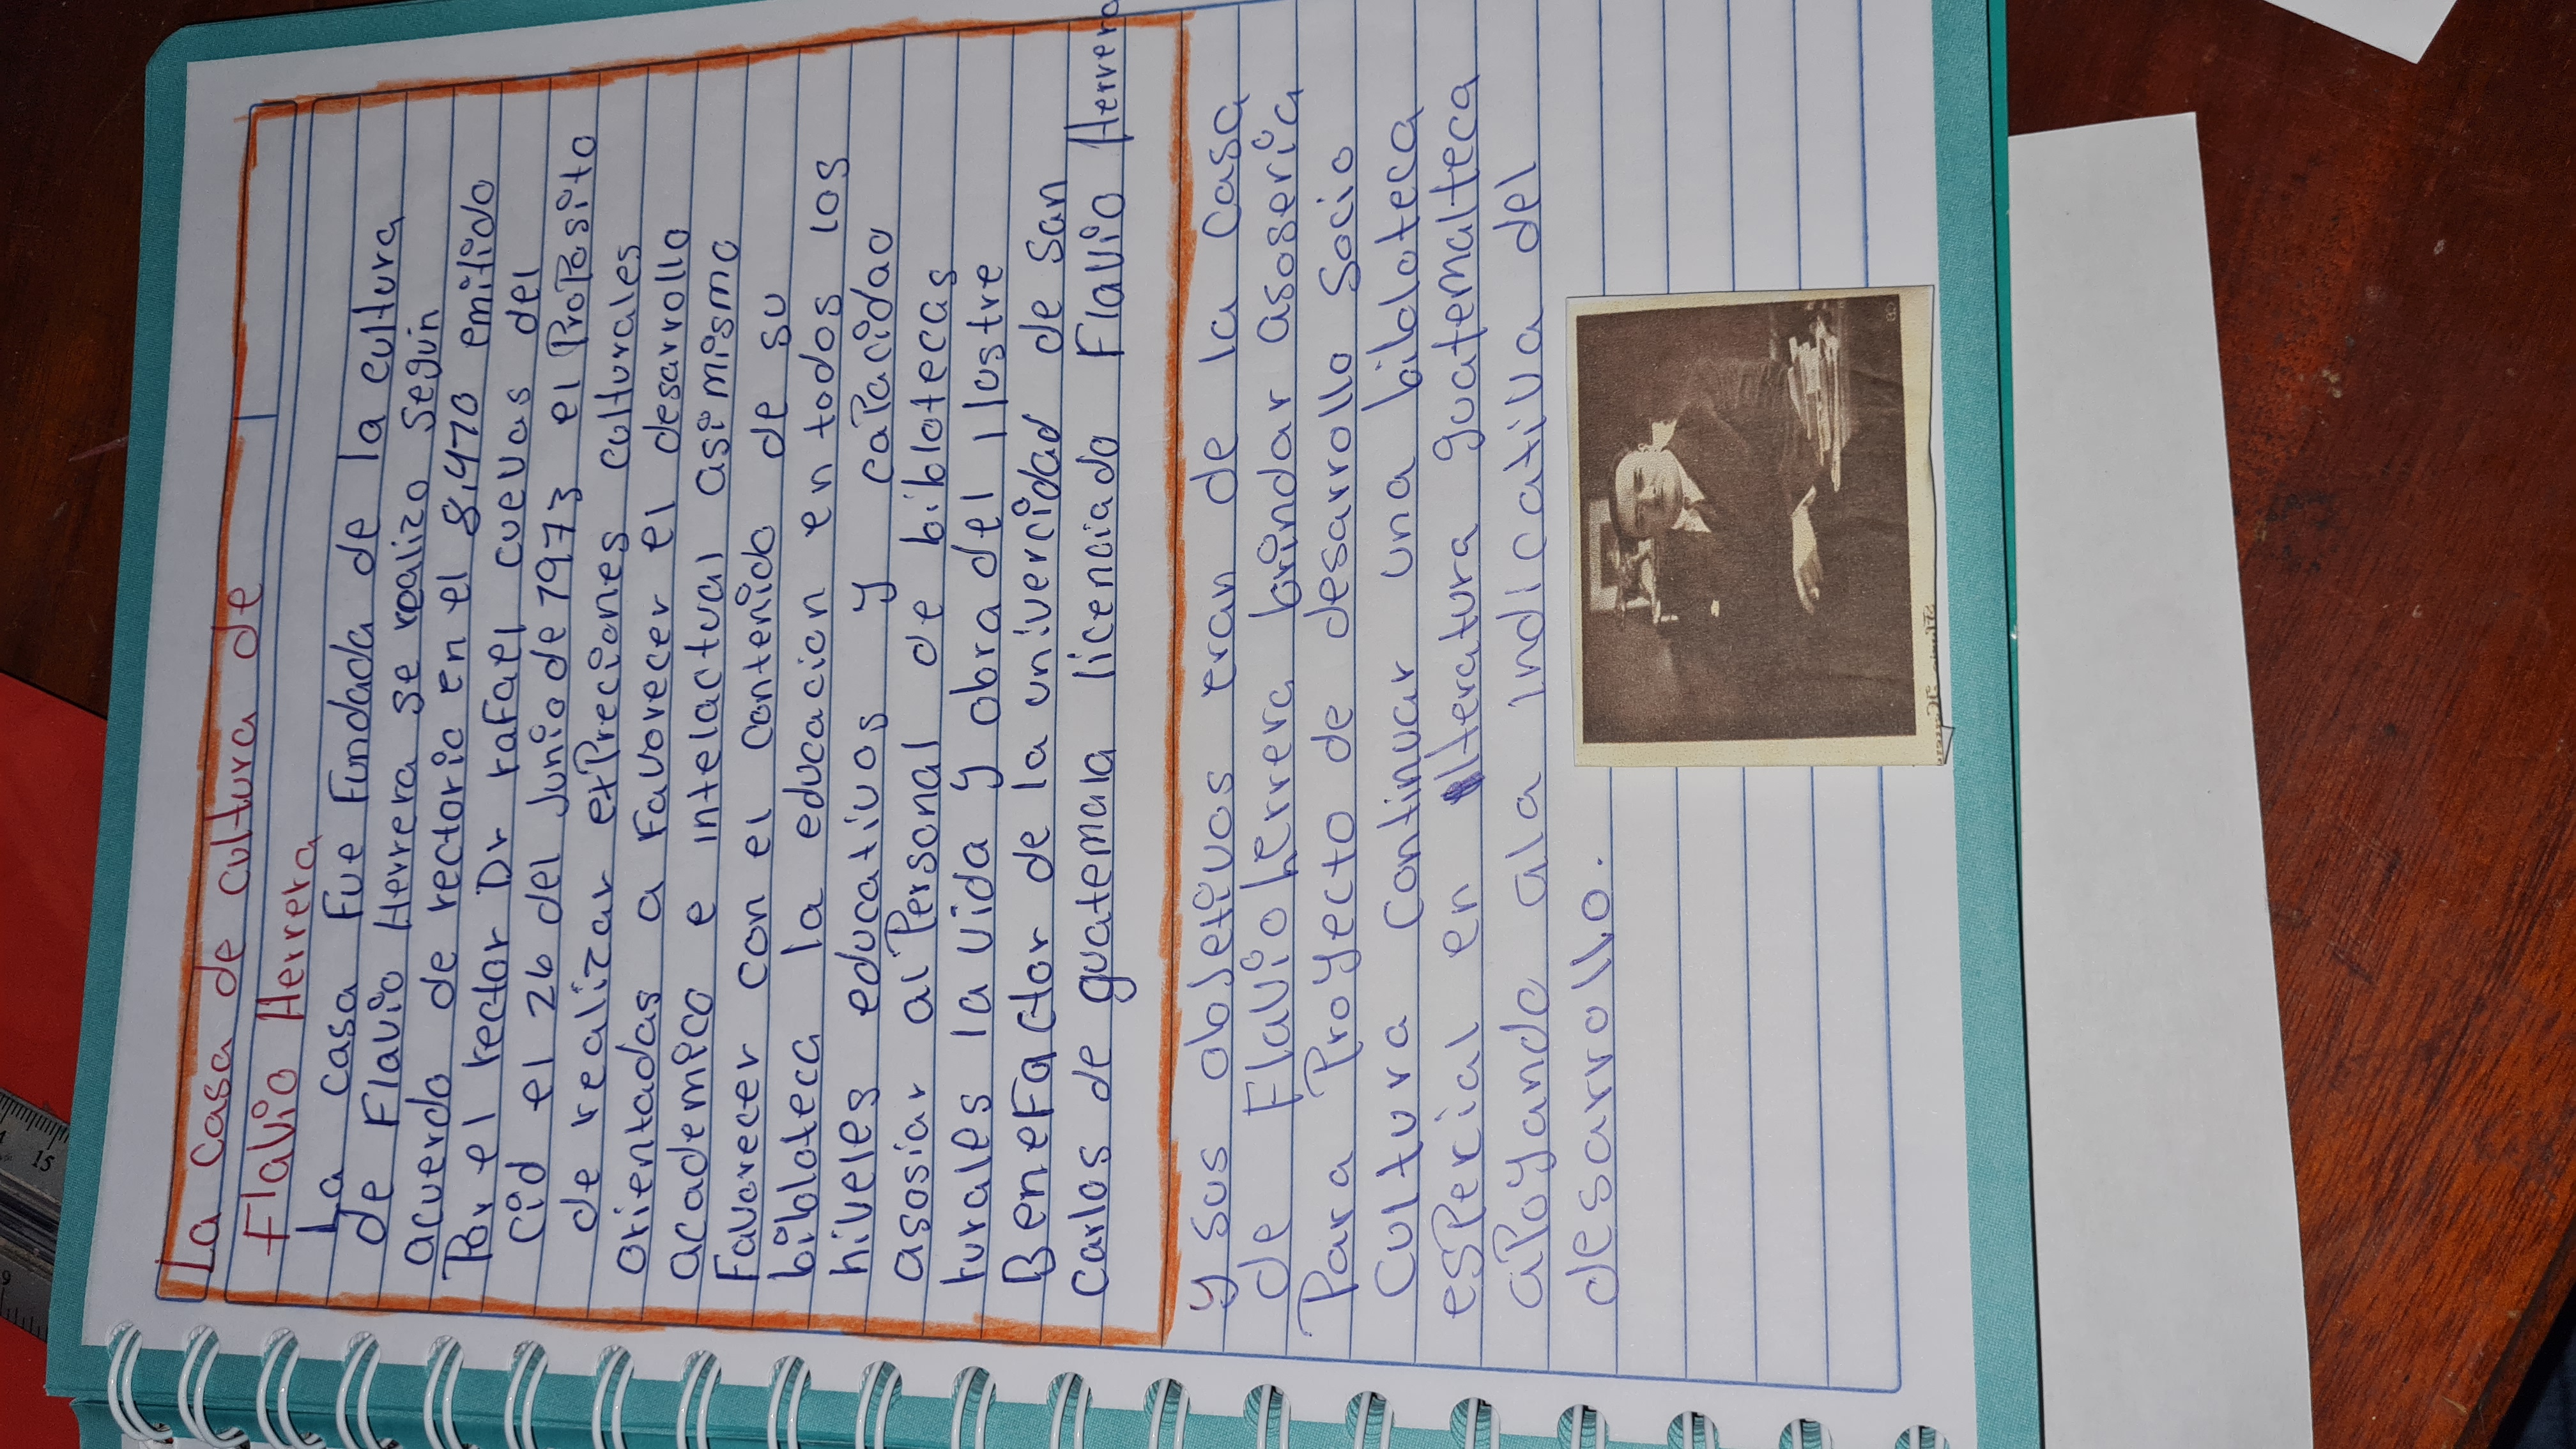 La casa de cultura de
Flavio Herrera
La casa Fue Fundada de la cultura
de Flavio Herrera se realizo según
acuerdo de rectorio en el 8,470 emitido
Por el rector Dr raFael cuevas del
cid el 26 del Junio de 1973 el ProPosito
de realizar exPreciones culturales
orientadas a Favorecer el desarrollo
academico e intelactual asimismo
Favorecer con el contenido de su
biblioteca la educacion en todos los
niveles educativos y caPacidao
asosiar al Personal de bibliotecas
rurales la vida y obra del Ilustre
BeneFactor de la univercidad de San
Carlos de guatemala licenciado Flavio Herrera
y sus objetivos eran de la casa
de Flavio herrera brindar asoseria
Para Proyecto de desarrollo Socio
Cultura continuar una biblioteca
esPecial en literatura guatemalteca
aPoyando ala Indicativa del
desarrollo.
15
9